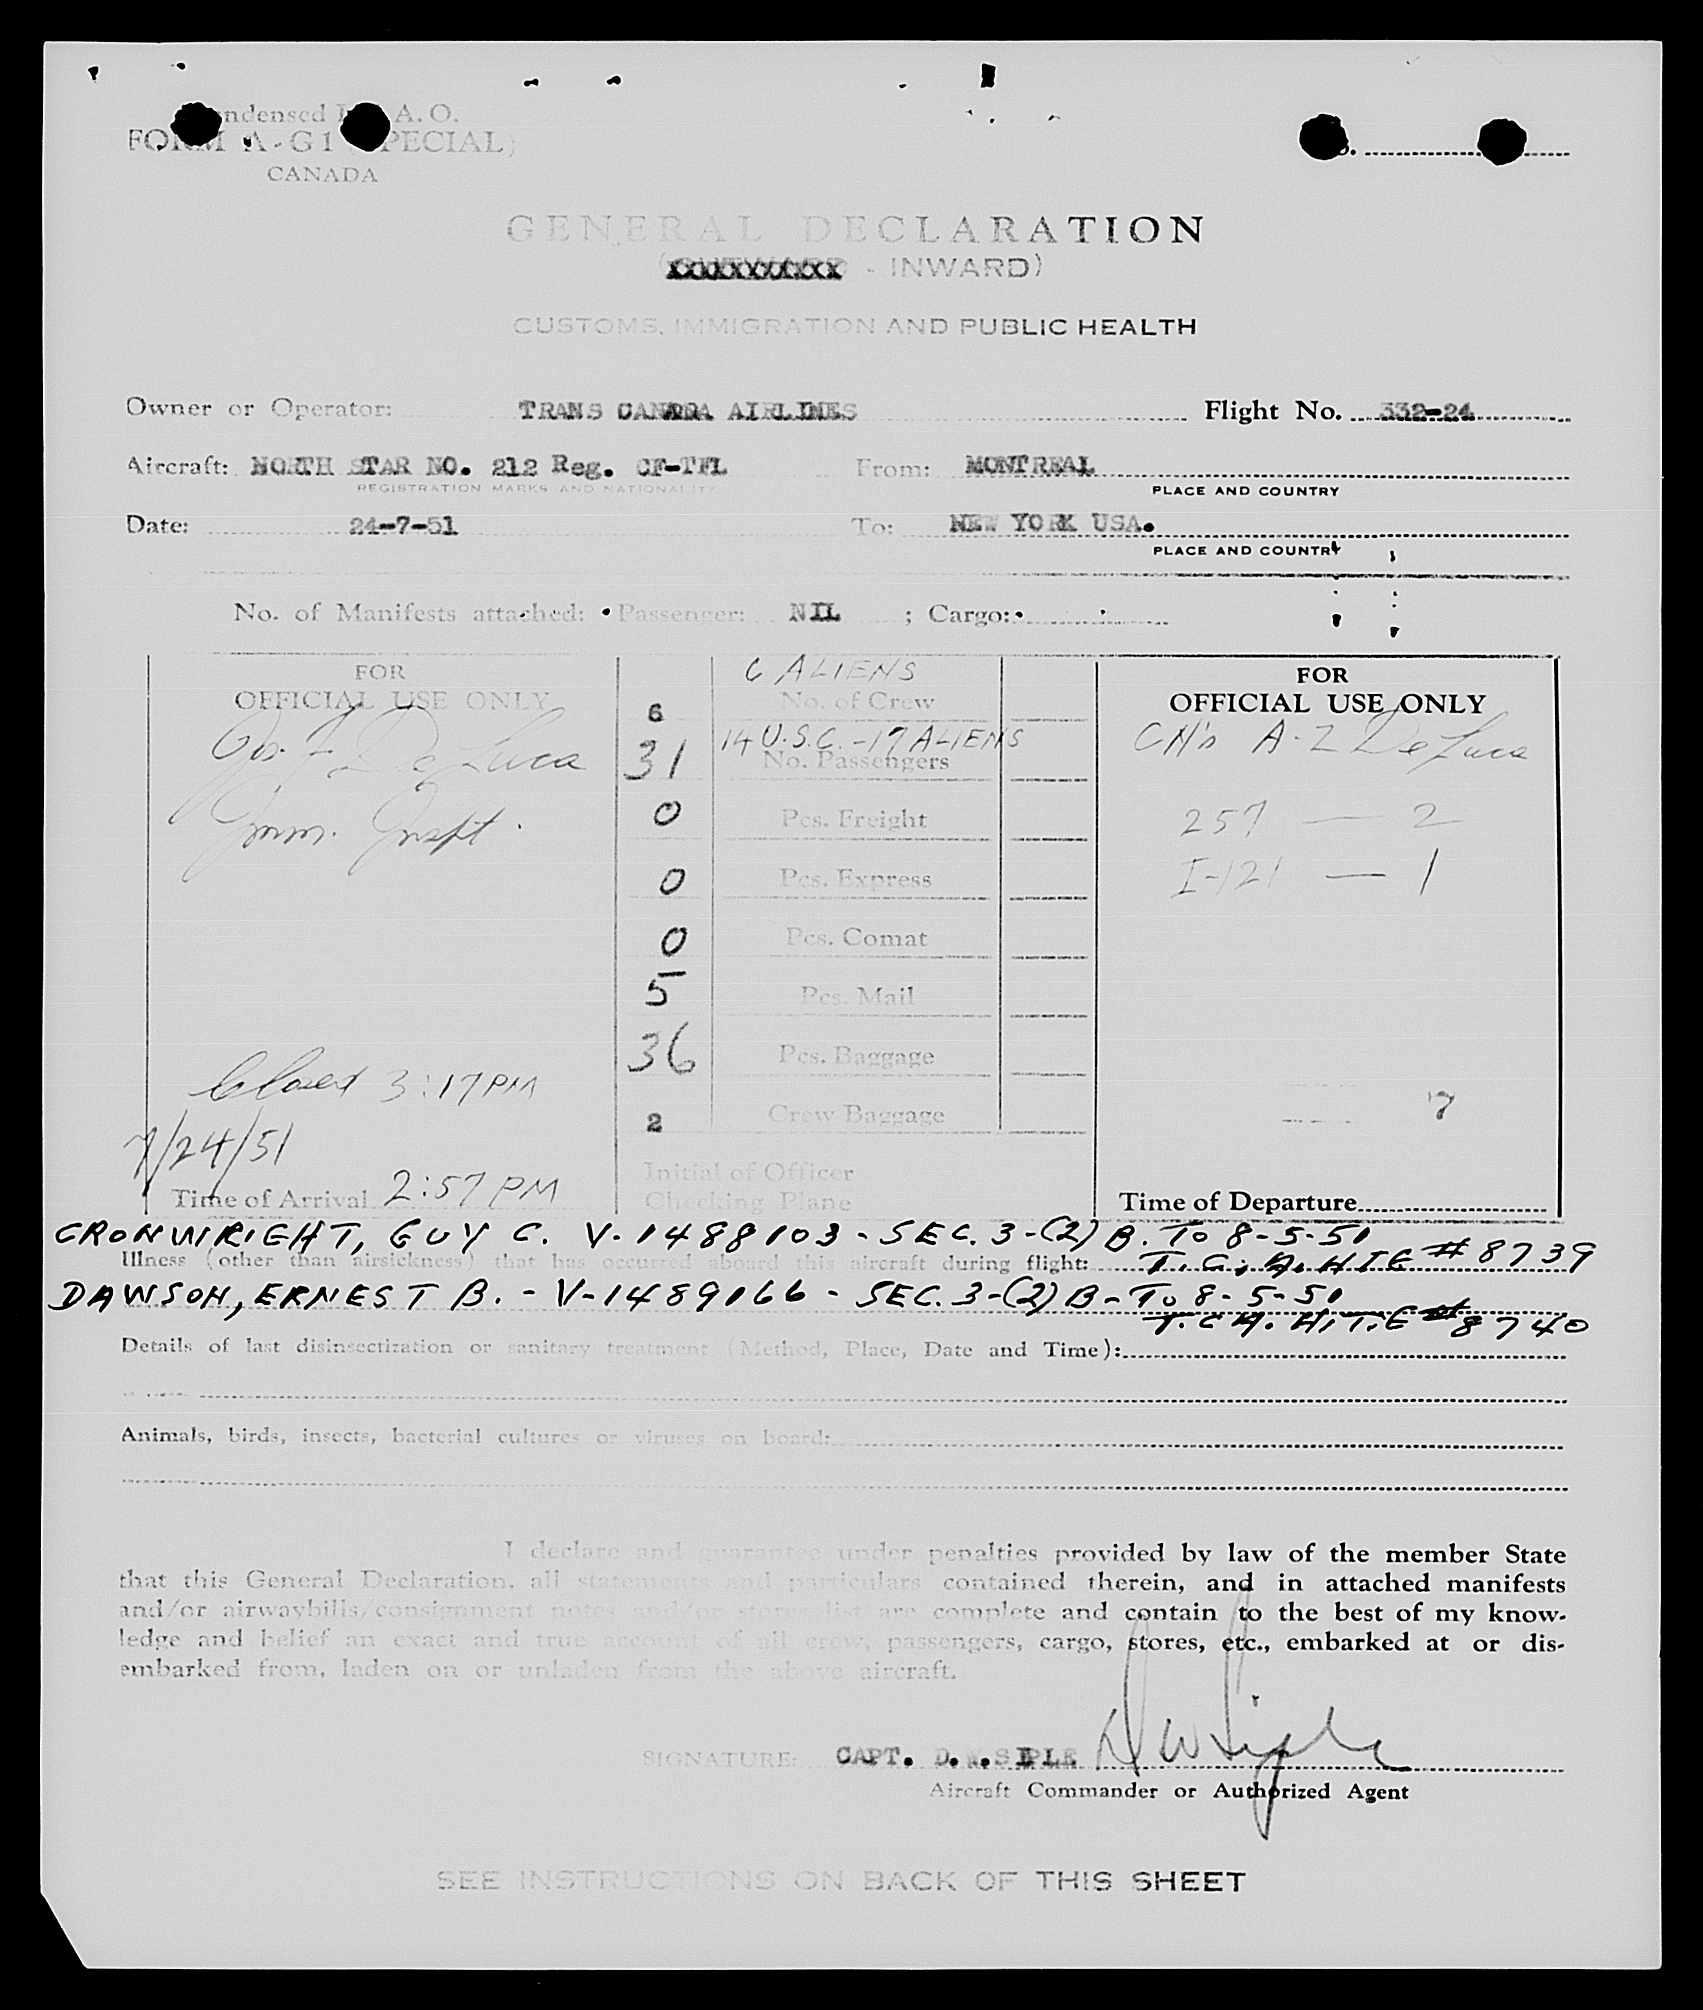 Condensed I. A. O.
FORM A-G1 (SPECIAL)
CANADA
GENERAL DECLARATION
(XXXXXXXXXX - INWARD)
CUSTOMS, IMMIGRATION AND PUBLIC HEALTH
Owner or Operator: TRANS CANADA AIRLINES Flight No. 332-24
Aircraft: NORTH STAR NO. 212 Reg. CF-TFL From: MONTREAL
REGISTRATION MARKS AND NATIONALITY PLACE AND COUNTRY
Date: 24-7-51 To: NEW YORK USA.
PLACE AND COUNTRY
No. of Manifests attached: Passenger: NIL ; Cargo:
FOR
OFFICIAL USE ONLY
De Luca
Imm. Inspt.
Closed 3:17 PM
7/24/51
Time of Arrival 2:57 PM
6 ALIENS
6 No. of Crew
14 U.S.C. - 17 ALIENS
31 No. Passengers
0 Pcs. Freight
0 Pcs. Express
0 Pcs. Comat
5 Pcs. Mail
36 Pcs. Baggage
2 Crew Baggage
Initial of Officer
Checking Plane
FOR
OFFICIAL USE ONLY
A-Z De Luca
257 — 2
I-121 — 1
7
Time of Departure
CRONWRIGHT, GUY C. V-1488103 - SEC. 3-(2) B. TO 8-5-51
Illness (other than airsickness) that has occurred aboard this aircraft during flight: T.C.A. HTE # 8739
DAWSON, ERNEST B. - V-1489166 - SEC. 3-(2) B - TO 8-5-51
T.C.A. H.T.E # 8740
Details of last disinsectization or sanitary treatment (Method, Place, Date and Time):
Animals, birds, insects, bacterial cultures or viruses on board:
I declare and guarantee under penalties provided by law of the member State
that this General Declaration, all statements and particulars contained therein, and in attached manifests
and/or airwaybills/consignment notes and/or stores list are complete and contain to the best of my know-
ledge and belief an exact and true account of all crew, passengers, cargo, stores, etc., embarked at or dis-
embarked from, laden on or unladen from the above aircraft.
SIGNATURE: CAPT. D.W.SIPLE D W Siple
Aircraft Commander or Authorized Agent
SEE INSTRUCTIONS ON BACK OF THIS SHEET